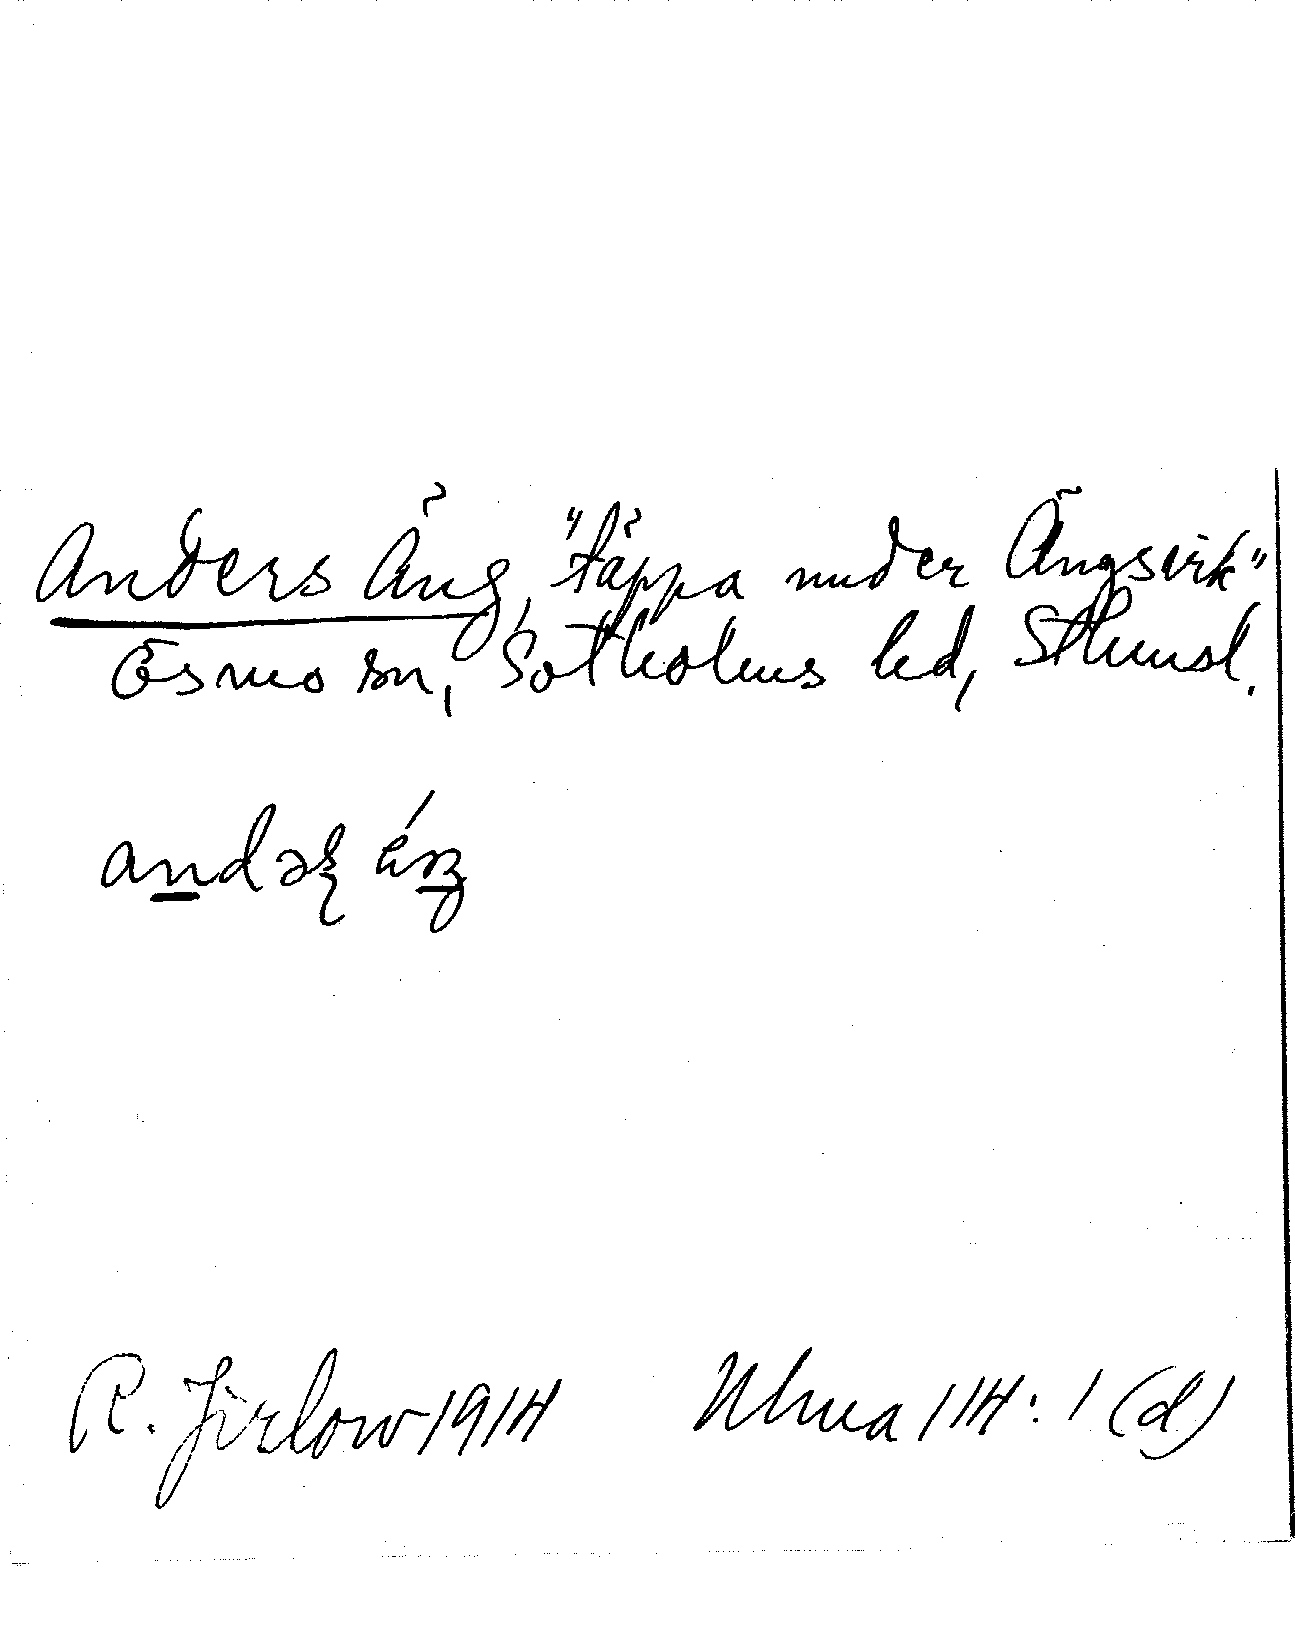 Anders Äng, "täppa under Ängsvik"
Ösmo sn, Sotholms hd, Sthmsl.
R. Jirlow 1914 Ulma 114:1 (d)